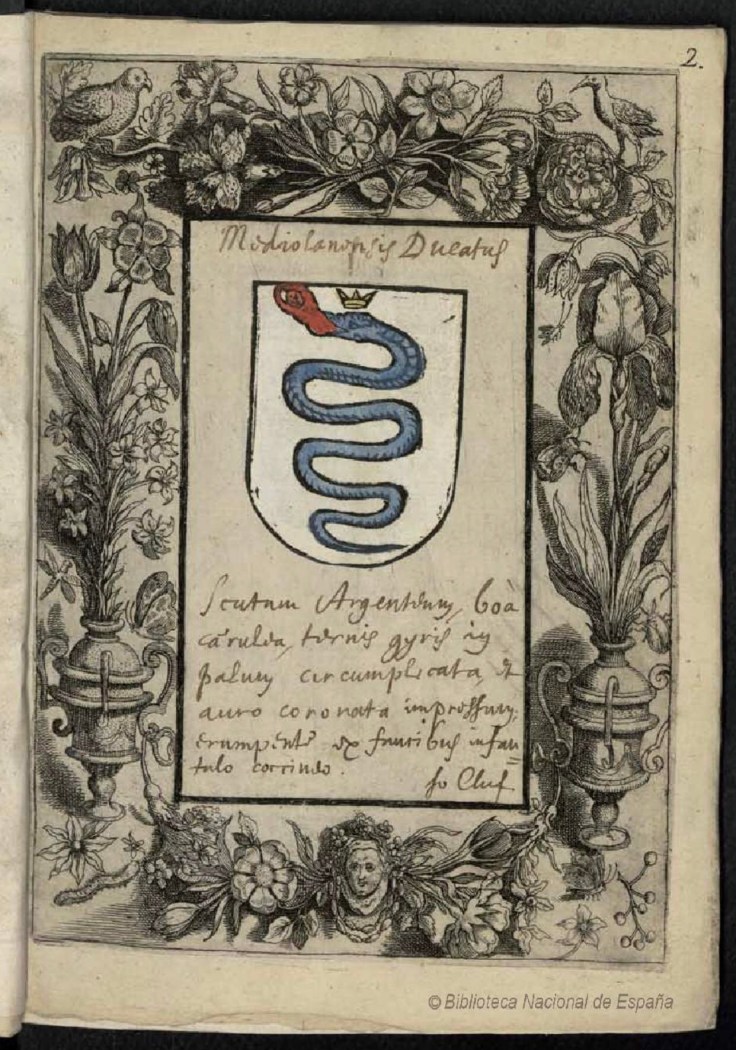 2.
Mediolanensis Ducatus
Scutum Argenteum, boâ
cærulea, ternis gyris in
palum circumplicata, et
auro coronata impressum,
erumpente ex faucibus infan=
tulo coccineo.
fo Cluf
© Biblioteca Nacional de España